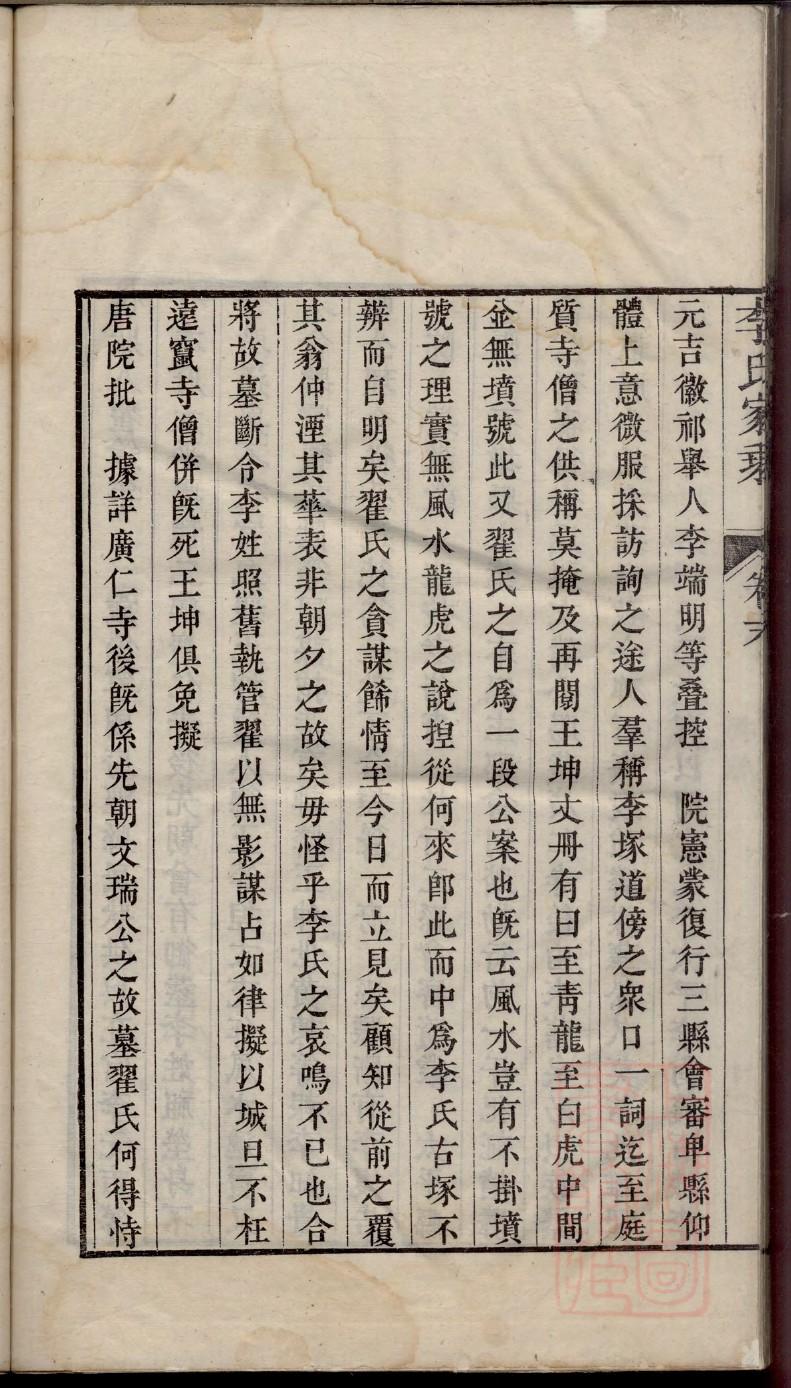 李氏家乘
卷六
元吉徽祁舉人李端明等叠控　院憲蒙復行三縣會審卑縣仰
體上意微服採訪詢之途人羣稱李塚道傍之衆口一詞迄至庭
質寺僧之供稱莫掩及再閱王坤丈冊有曰至靑龍至白虎中間
並無墳號此又翟氏之自爲一段公案也旣云風水豈有不掛墳
號之理實無風水龍虎之說揑從何來卽此而中爲李氏古塚不
辨而自明矣翟氏之貪謀餙情至今日而立見矣顧知從前之覆
其翁仲湮其華表非朝夕之故矣毋怪乎李氏之哀鳴不已也合
將故墓斷令李姓照舊執管翟以無影謀占如律擬以城旦不枉
遠竄寺僧併旣死王坤俱免擬
唐院批　據詳廣仁寺後旣係先朝文瑞公之故墓翟氏何得恃